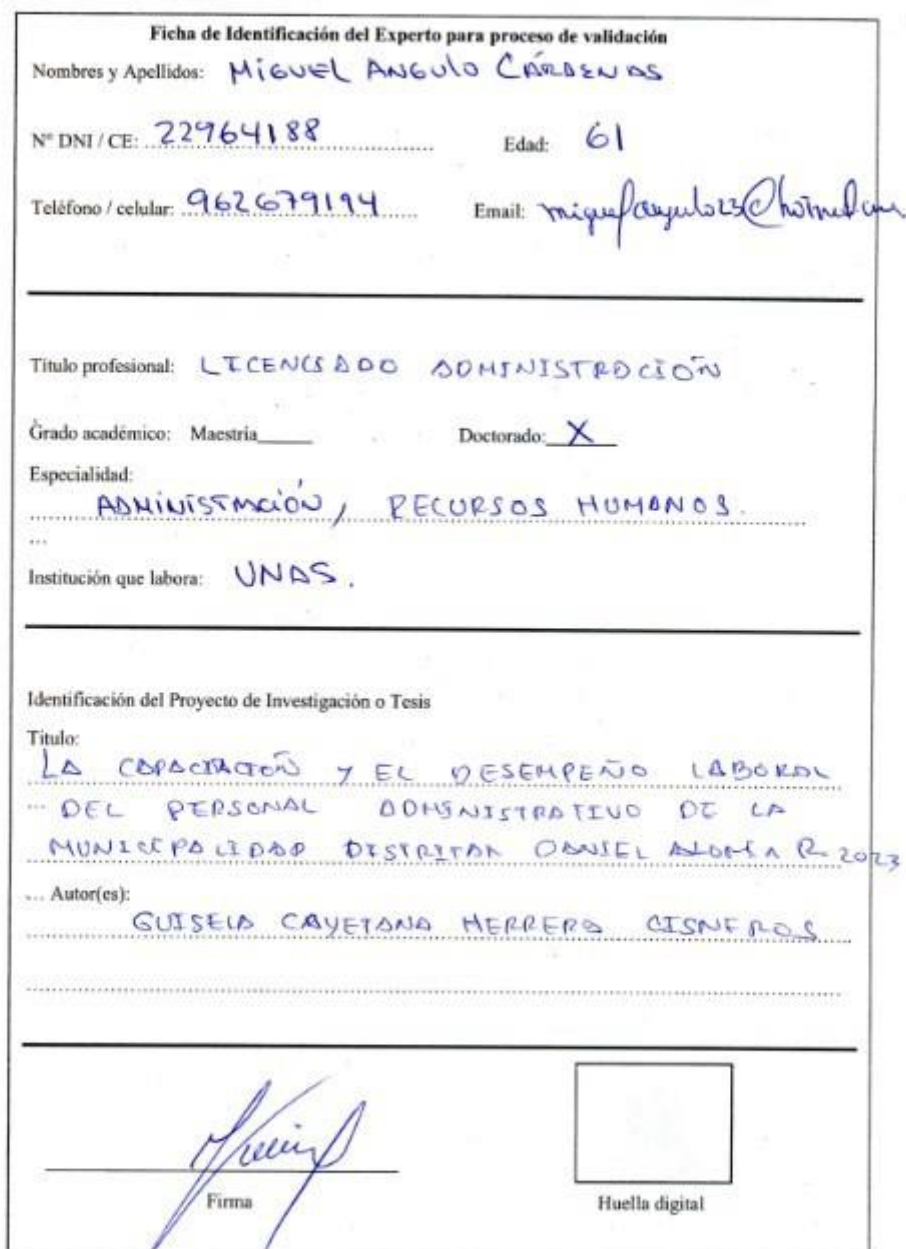 Ficha de Identificación del Experto para proceso de validación
Nombres y Apellidos: MIGUEL ANGULO CÁRDENAS
N° DNI / CE: 22964188 Edad: 61
Teléfono / celular: 962679194 Email: miguelangulo23@hotmail.com
Título profesional: LICENCIADO ADMINISTRACIÓN
Grado académico: Maestría_____ Doctorado: X
Especialidad:
ADMINISTRACIÓN, RECURSOS HUMANOS.
...
Institución que labora: UNAS.
Identificación del Proyecto de Investigación o Tesis
Título:
LA CAPACITACIÓN Y EL DESEMPEÑO LABORAL
... DEL PERSONAL ADMINISTRATIVO DE LA
MUNICIPALIDAD DISTRITAL DANIEL ALOMÍA R. 2023
... Autor(es):
GUISELA CAYETANA HERRERA CISNEROS
Firma Huella digital